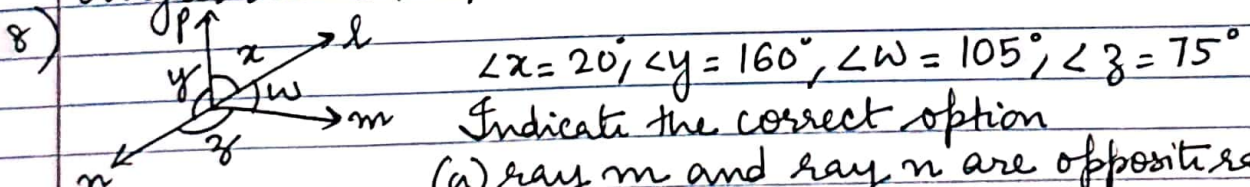 8)
p
l
x
y
w
m
z
n
∠x = 20°, ∠y = 160°, ∠w = 105°, ∠z = 75°
Indicate the correct option
(a) ray m and ray n are opposite